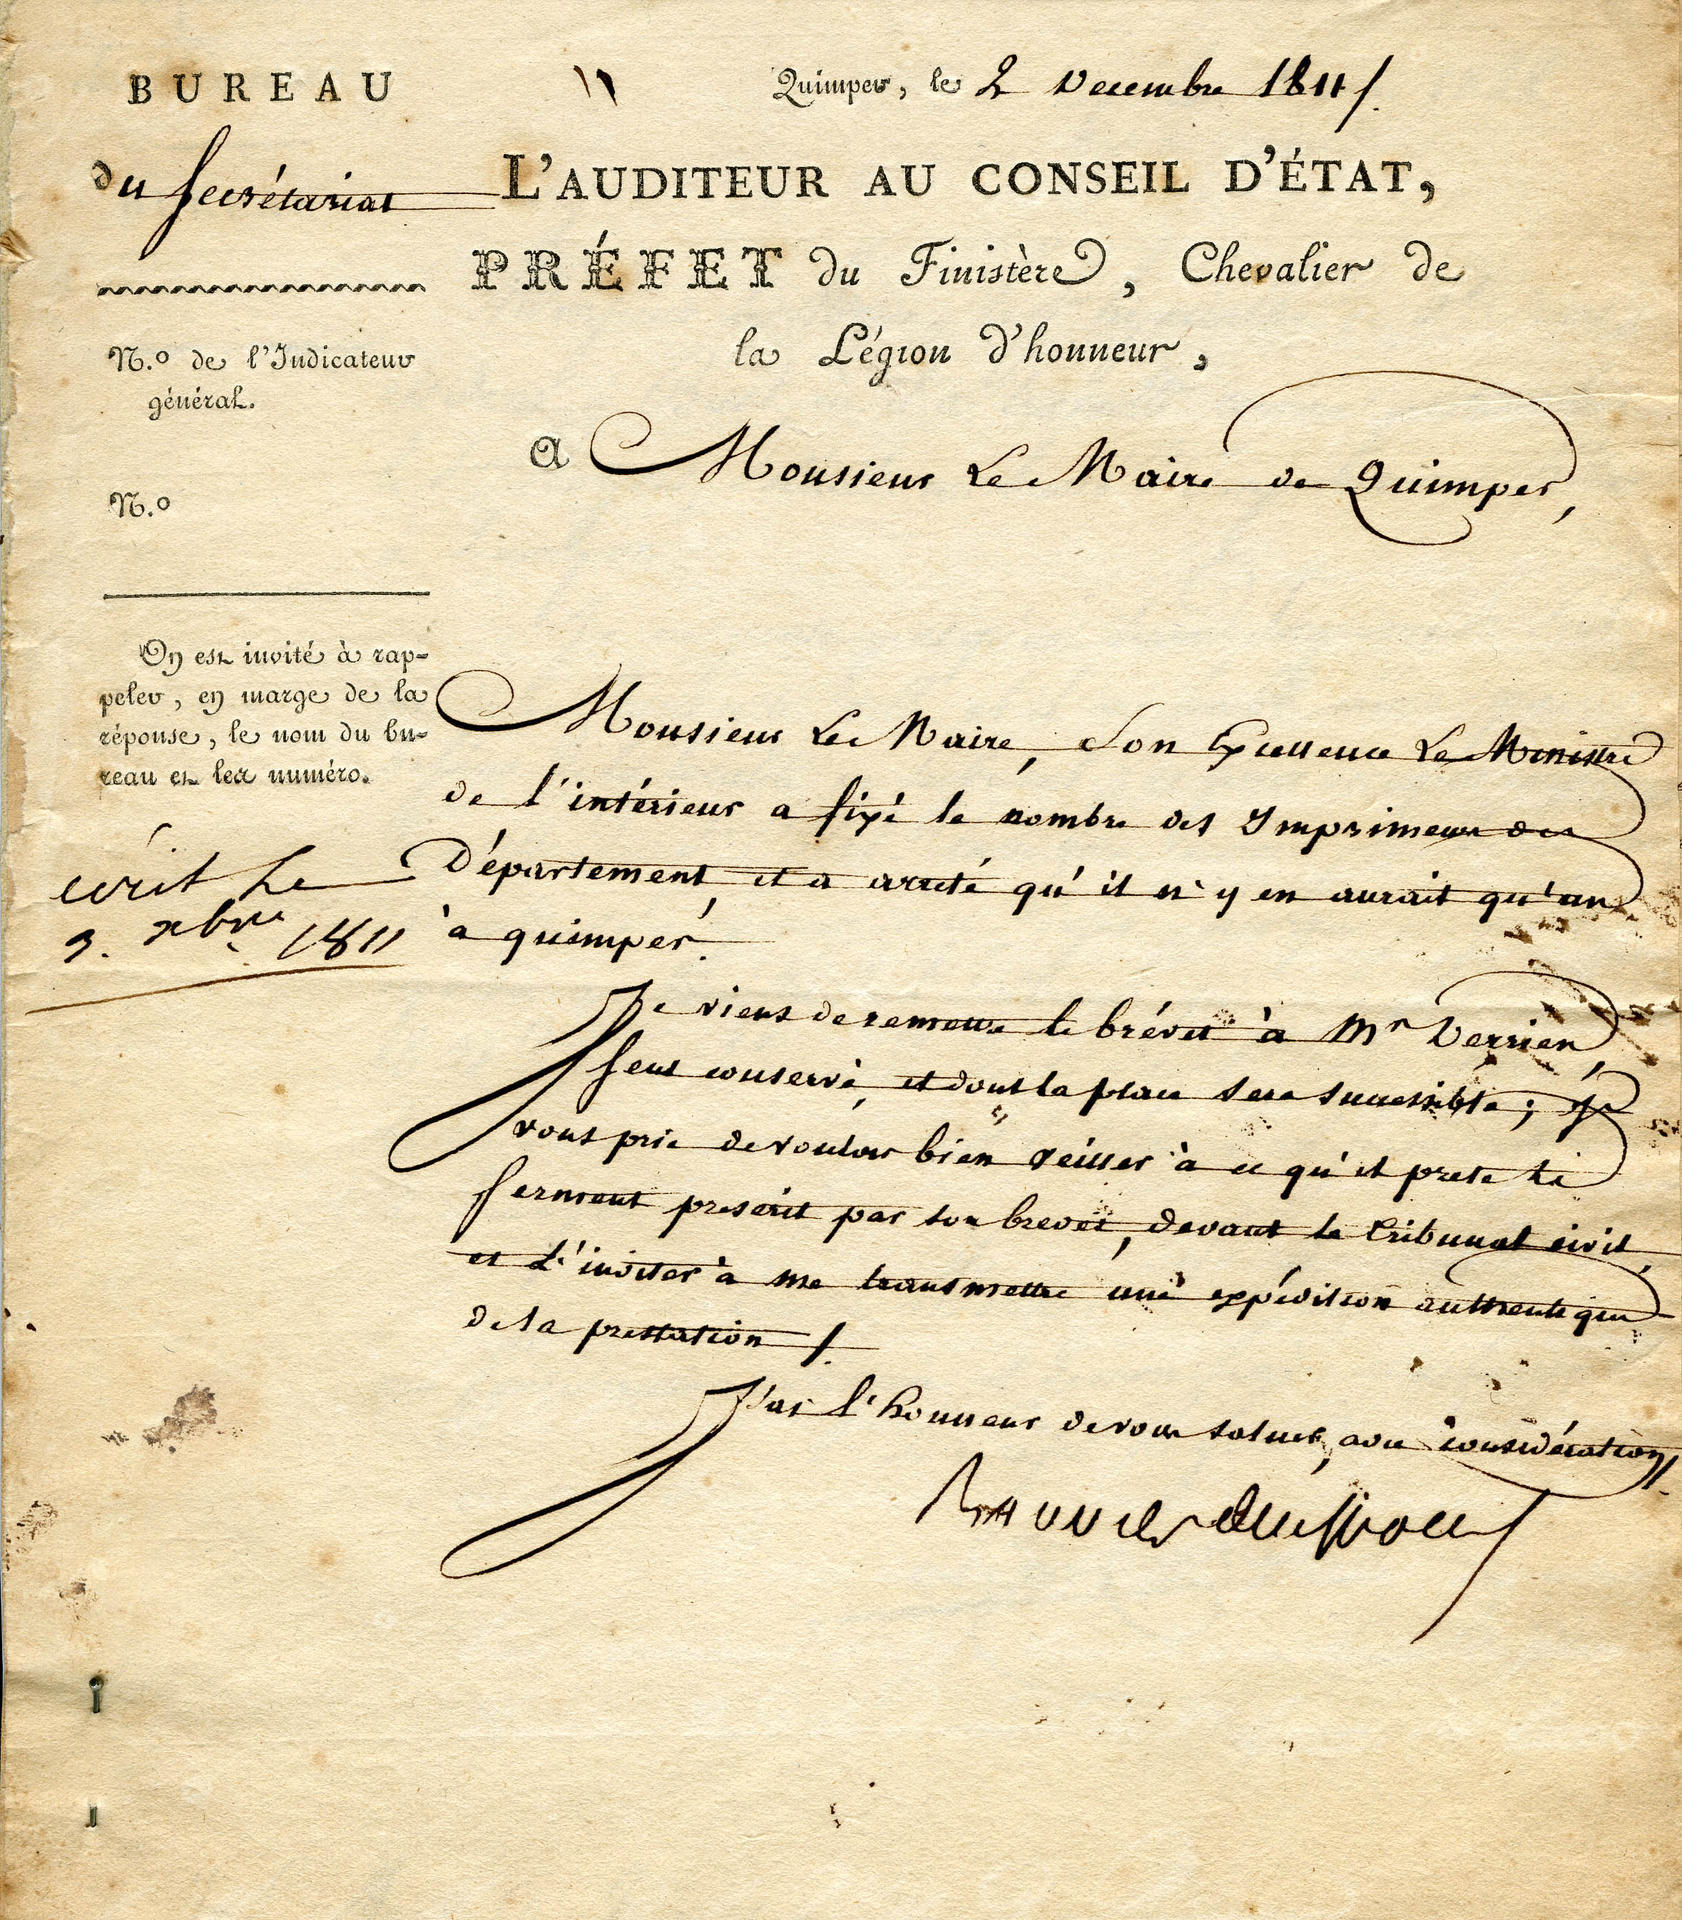 BUREAU
du Secrétariat
N.º de l'Indicateur
général.
N.º
On est invité à rap-
peler, en marge de la
réponse, le nom du bu-
reau et les numéro.
écrit le
3. xbre 1811
Quimper, le 2 Decembre 1811/.
L'AUDITEUR AU CONSEIL D'ÉTAT,
PRÉFET du Finistère, Chevalier de
la Légion d'honneur,
A Monsieur Le Maire de Quimper,
Monsieur Le Maire, Son Excellence Le Ministre
de l'intérieur a fixé le nombre des Imprimeurs du
Département, et a arreté qu'il n'y en aurait qu'un
à quimper.
Je viens de remettre le brévet à Mr Derrien,
seul conservé, et dont la place sera successible; Je
vous prie de vouloir bien veiller à ce qu'il prete le
serment prescrit par son brevet, devant le tribunal civil,
et L'inviter à me transmettre une expédition authentique
de la prestation /.
J'ai l'honneur de vous saluer, avec considération /.